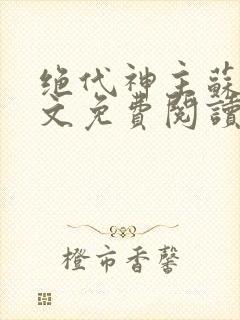 绝代神主蘇
文免費閱讀
橙市香馨